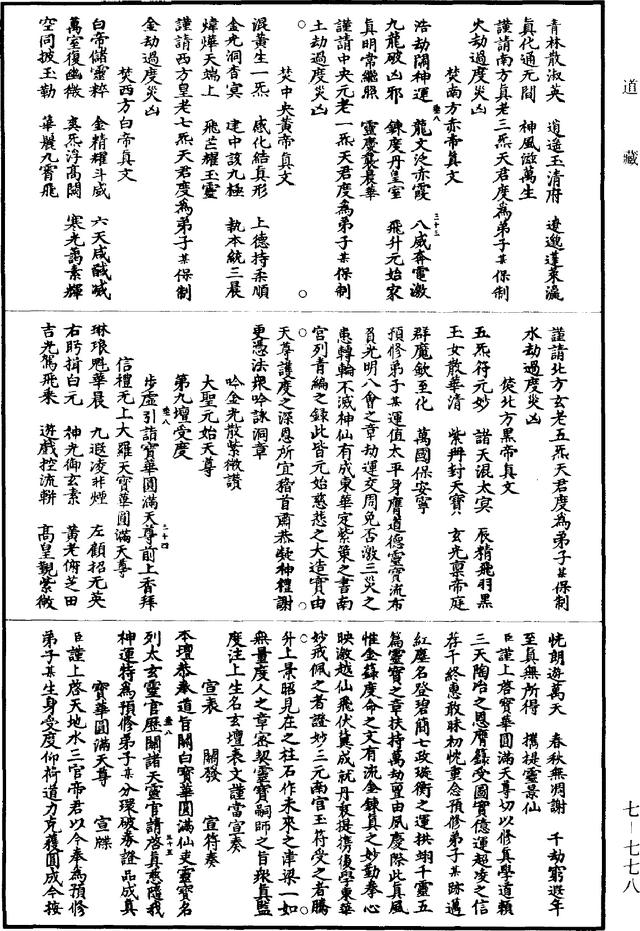 道藏
青林散淑英　逍遥玉清府　遼邈蓬萊瀛
真化通无間　神風激萬生
謹請南方真老三炁天君度為弟子某保制
火劫過度災凶
焚南方赤帝真文
浩劫開神運　龍文泛赤霞　八威奔電激
九龍破凶邪　鍊度丹皇室　飛升元始家
真明常繼照　靈慶襲晨華
謹請中央元老一炁天君度為弟子某保制
土劫過度災凶
焚中央黃帝真文
混黃生一炁　感化結真形　上德持柔順
金光洞杳冥　建中該九極　執本統三晨
煒燁天端上　飛芒耀玉靈
謹請西方皇老七炁天君度為弟子某保制
金劫過度災凶
焚西方白帝真文
白帝儲靈粹　金精耀斗威　六天咸馘滅
萬室復幽微　奕炁浮高闕　寒光藹素輝
空同披玉勒　華鬘九霄飛
謹請北方玄老五炁天君度為弟子某保制
水劫過度災凶
焚北方黑帝真文
五炁符元妙　諸天混太冥　辰精飛羽黑
玉女散華清　紫輿封天寶　玄光稟帝庭
群魔欽至化　萬國保安寧
預修弟子某運值太平身膺道德靈寶流布
員光明八會之章劫運交周免否激三災之
患轉輪不滅神仙有成東華定紫策之書南
宮列青編之錄此皆元始慈悲之大造實由
天尊護度之深恩所宜稽首肅恭凝神禮謝
更憑法眾吟詠洞章
吟金光散紫微讚
大聖元始天尊
第九壇受度
步虛引詣寶華圓滿天尊前上香拜
信禮无上大羅天寶華圓滿天尊
琳琅魁華晨　九遐凌非煙　左顧招元英
右眄揖白元　神光御玄素　黃老俯芝田
吉光駕飛乘　遊戲控流軿　高皇觀紫微
恍朗遊萬天　春秋無凋謝　千劫窮遐年
至真無所得　攜提靈景仙
臣謹上啓寶華圓滿天尊切以修真學道賴
三天陶冶之恩膺籙受圖實億運超凌之信
荐干終惠敢昧初忱重念預修弟子某跡邁
紅塵名登碧簡七政璇衡之運拱翊千靈五
篇靈寶之章扶持萬劫寔由夙慶際此真風
惟金籙度命之文有流金鍊真之妙勤奉心
映激越仙飛伏冀成就丹衷提攜後學東華
妙戒佩之者證妙三元南宮玉符受之者騰
升上景昭見在之柱石作未來之津梁一如
無量度人之章密契靈寶嗣師之旨眾真監
度注上生名玄壇表文謹當宣奏
宣表　關發　宣符奏
本壇恭奉道旨關白寶華圓滿仙吏靈寶名
列太玄靈官歷關諸天靈官請啓真慈隨我
神運特為預修弟子某分環破券證品成真
寶華圓滿天尊　宣牒
臣謹上啓天地水三官帝君以今奉為預修
弟子某生身受度仰荷道力克獲圓成合按
七—七七八